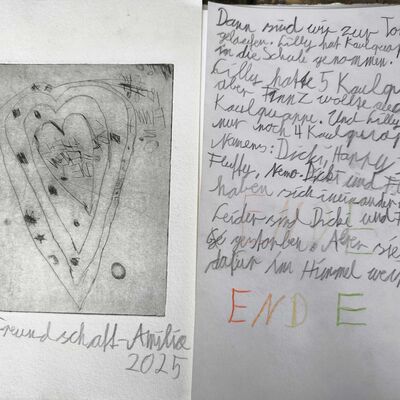 Freundschaft-Amilia
2025
Dann sind wir zur
gelaufen. Lilly hat Kaulqua
in die Schule genommen.
Lilly hatte 5 Kaulq
aber Finnz wollte
Kaulquappe. Und Lilly
nur noch 4 Kaulquap
Namens: Dicki, Happy
Fluffy, Nemo-Dicki und F
haben sich ineinander
Leider sind Dicki und F
gestorben. Aber sie
dafür im Himmel wei
ENDE